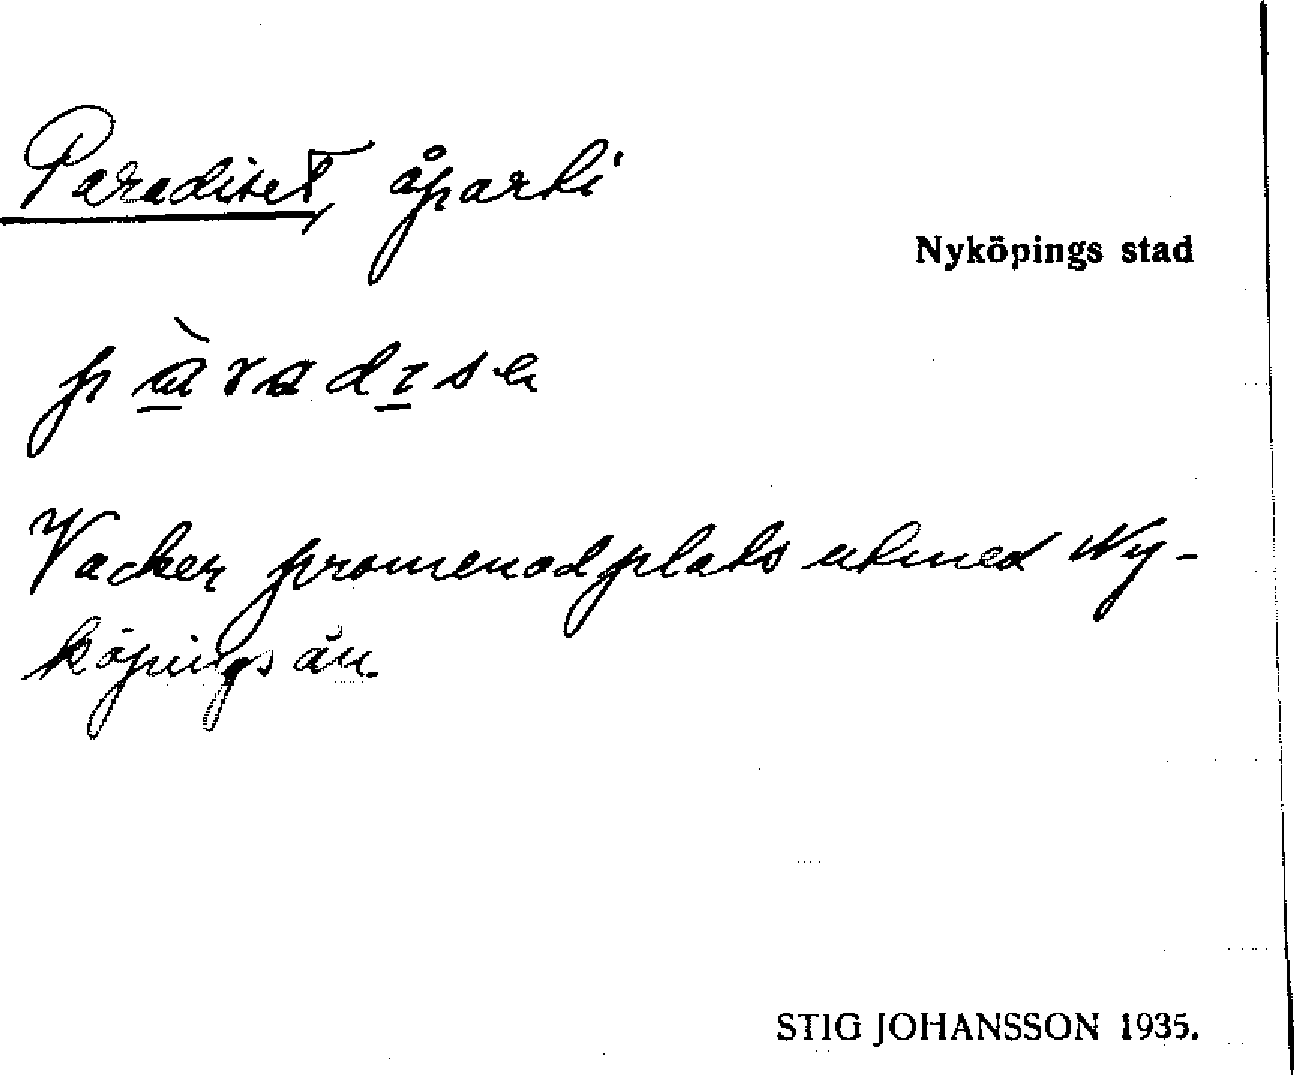 Paradiset, åparti
Nyköpings stad
pàradisə
Vacker promenadplats utmed Ny-
köpingsån.
STIG JOHANSSON 1935.